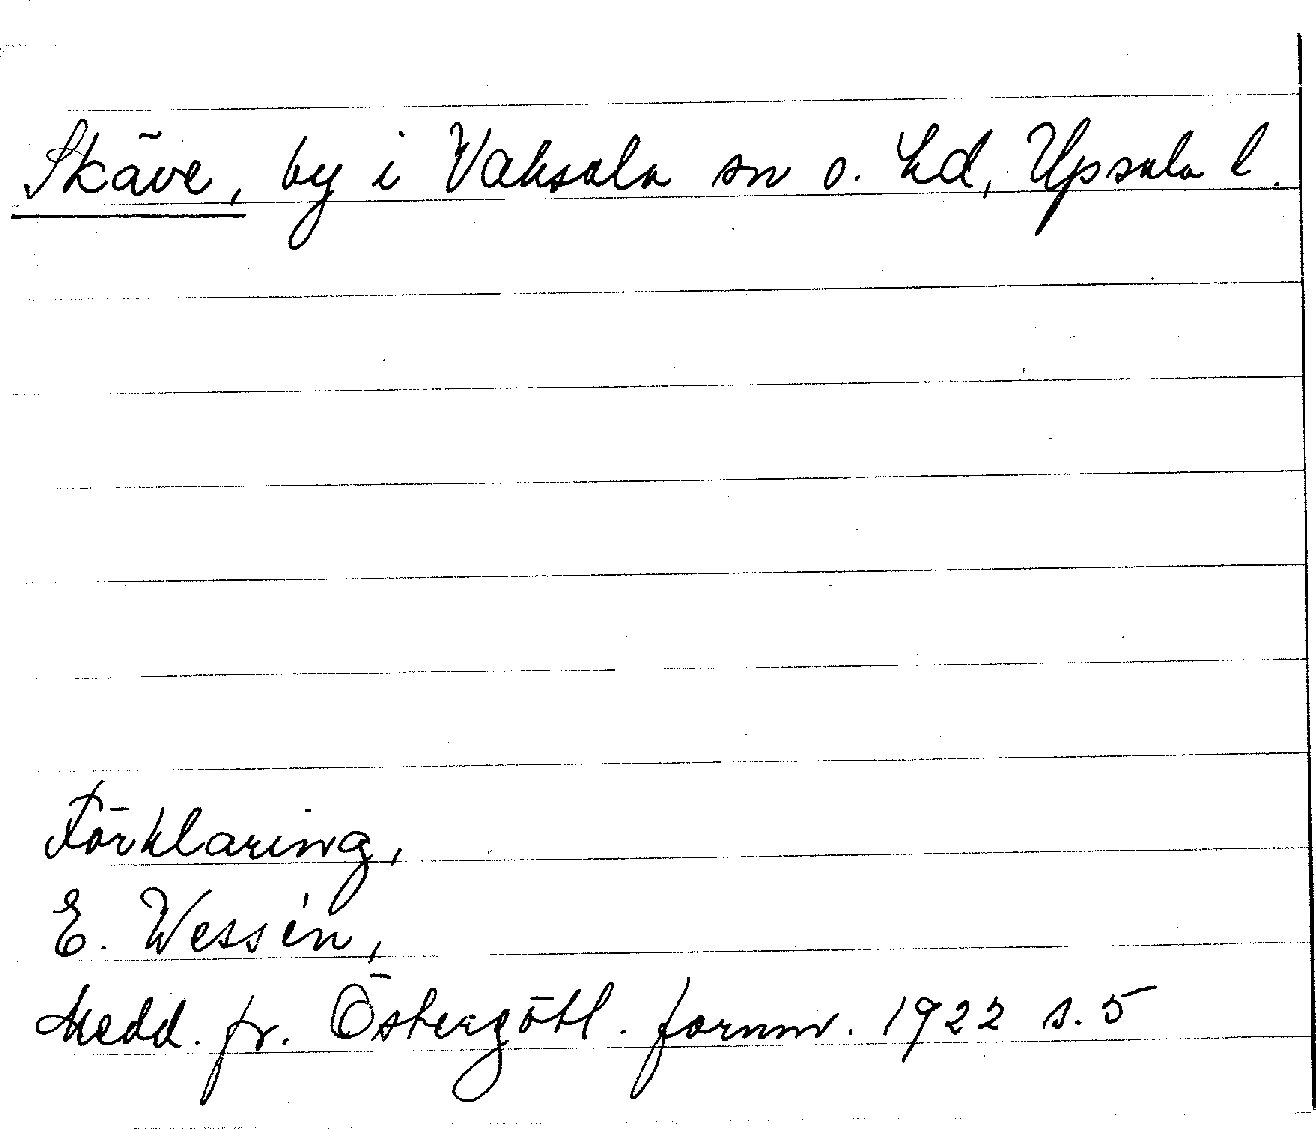 Skäve, by i Vaksala sn o. hd, Upsala l.
Förklaring,
E. Wessén,
Medd. fr. Östergötl. fornm. 1922 s. 5